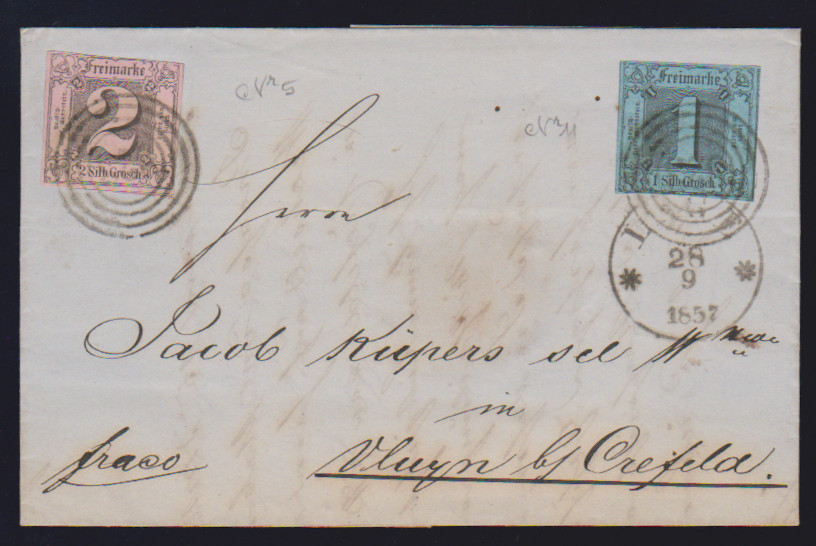 Freimarke
2
2 Silb. Grosch.
Freimarke
1
1 Silb. Grosch.
Nr 5
Nr 11
Herrn
Jacob Küpers sel Wwe
in
Vluyn b/ Crefeld.
fraco
L
28
9
1857